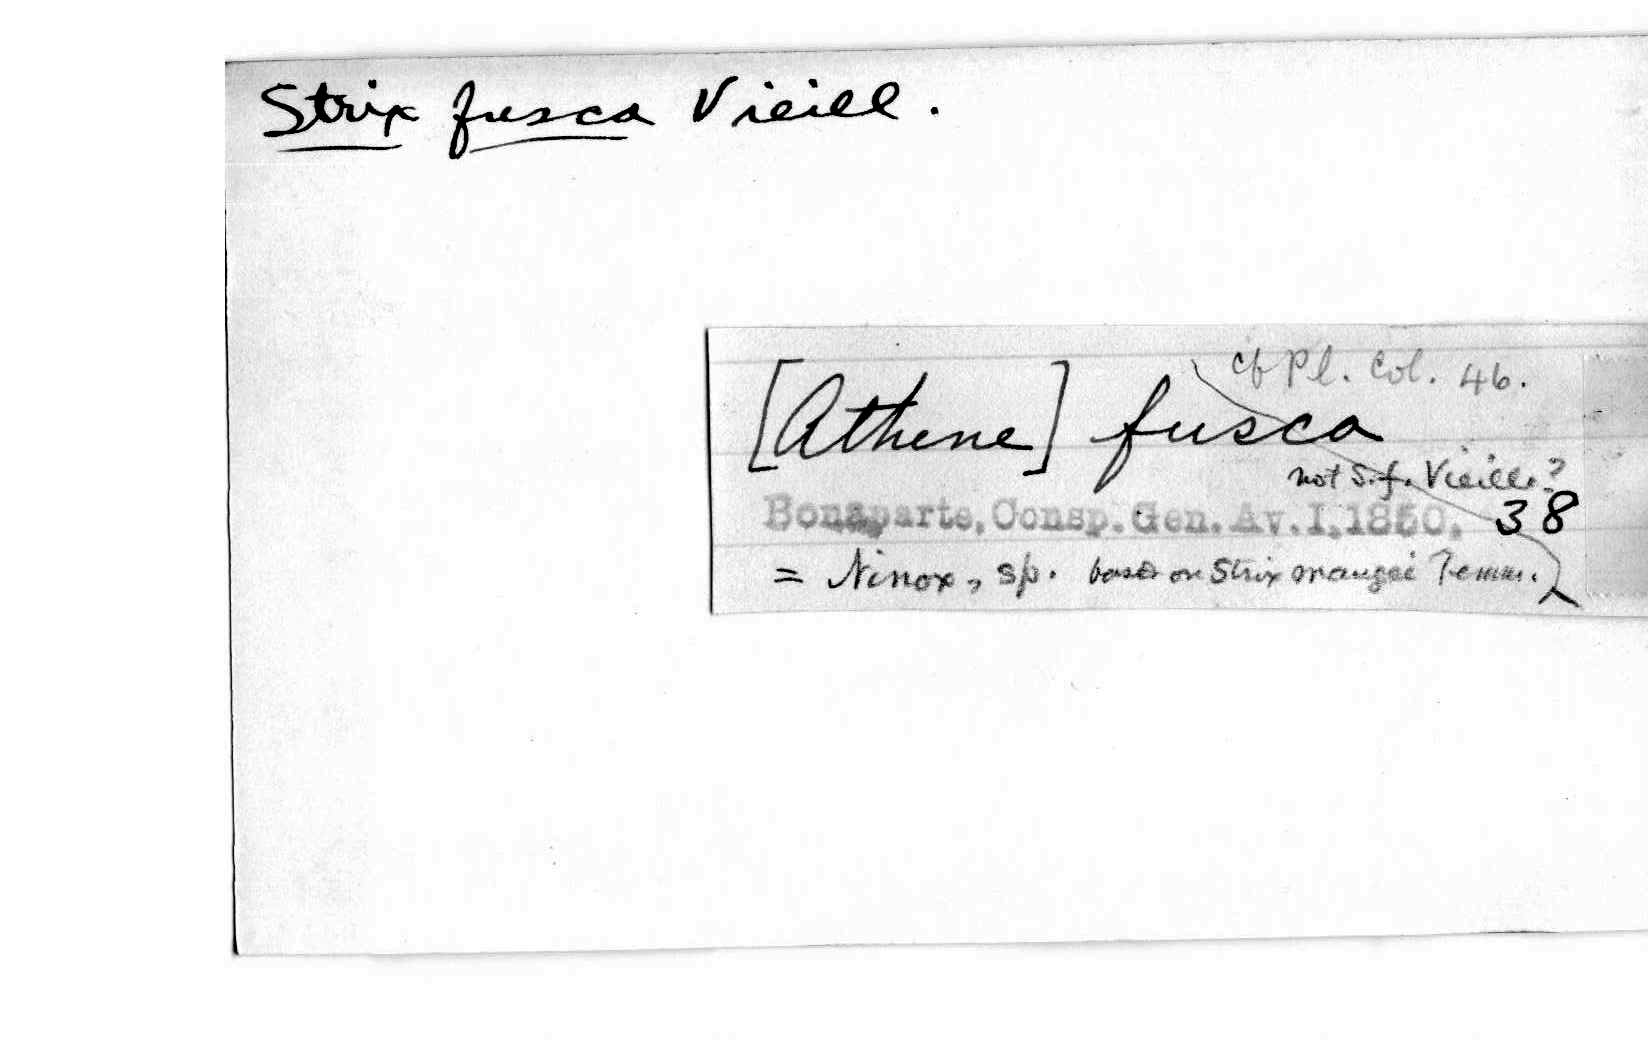 Strix fusca Vieill.
cf Pl. Col. 46.
[Athene] fusca
not S. f. Vieill.?
Bonaparte, Consp. Gen. Av. I, 1850, 38
= Ninox, sp. based on Strix maugei Temm.